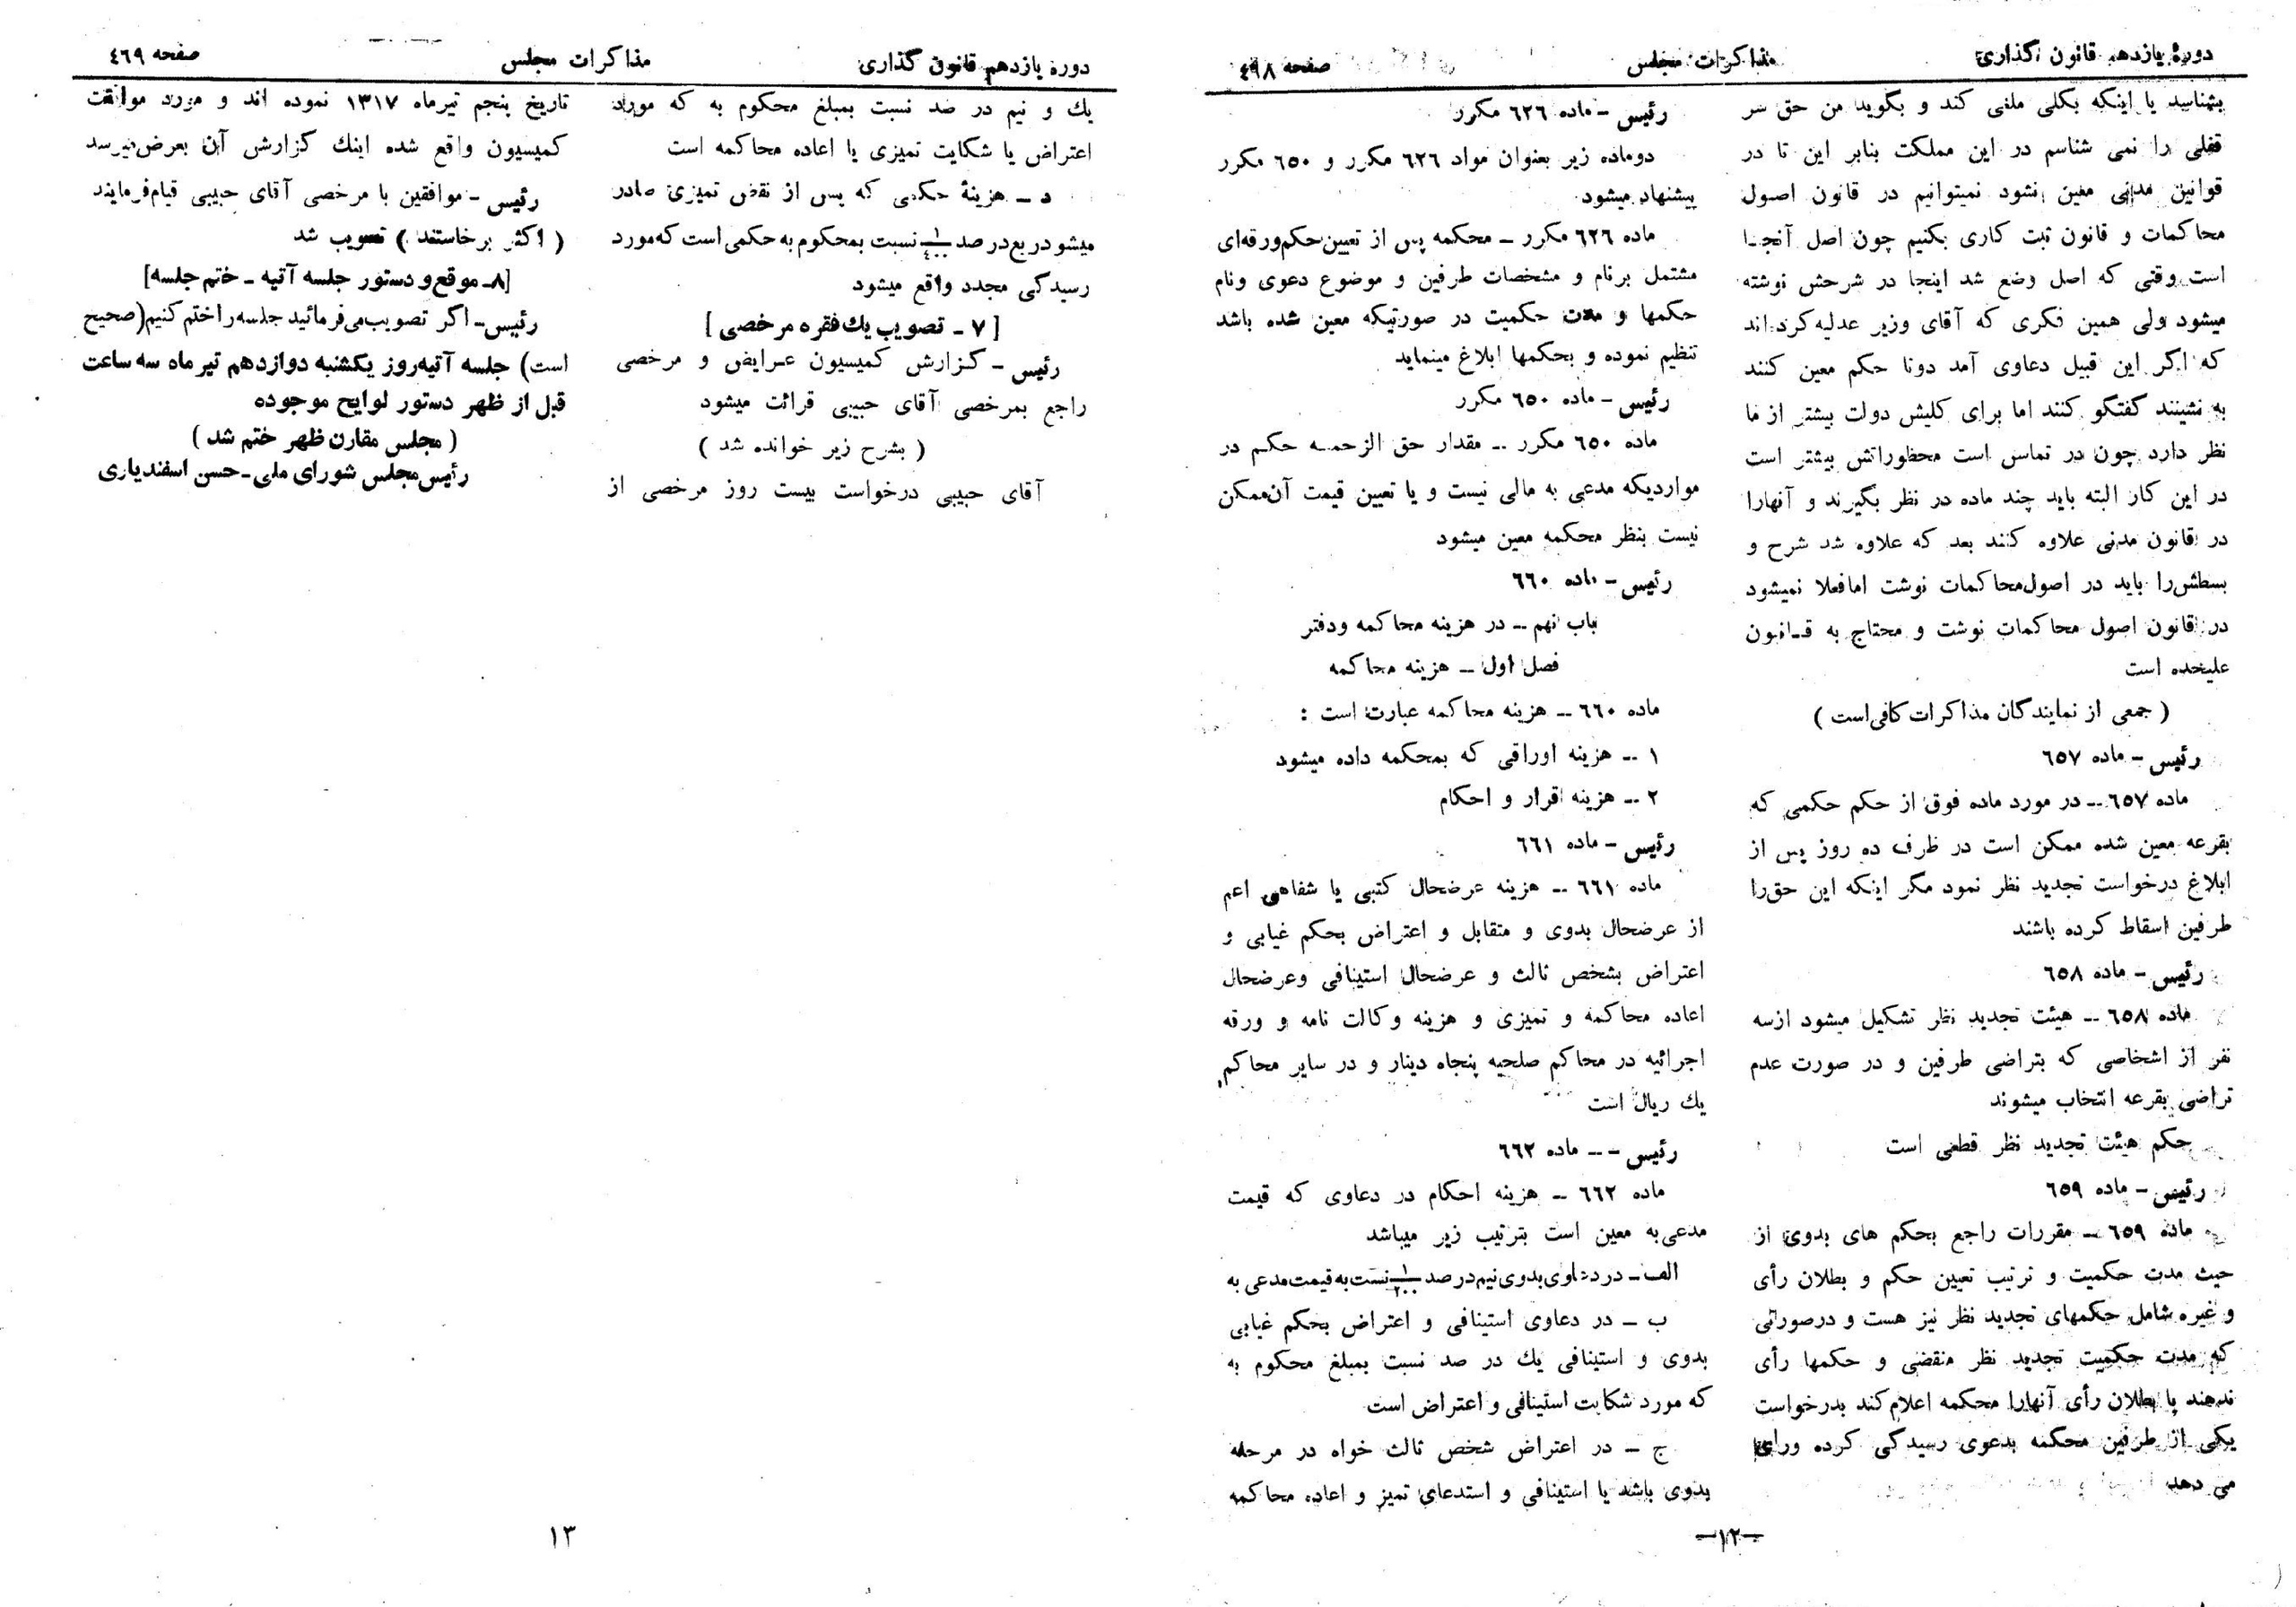 دورهٔ یازدهم قانون گذاری
مذاکرات مجلس
صفحه ٤٩٨
بشناسد یا اینکه بکلی ملغی کند و بگوید من حق سر
قفلی را نمی شناسم در این مملکت بنابر این تا در
قوانین مدنی معین نشود نمیتوانیم در قانون اصول
محاکمات و قانون ثبت کاری بکنیم چون اصل آنجا
است وقتی که اصل وضع شد اینجا در شرحش نوشته
میشود ولی همین فکری که آقای وزیر عدلیه کرده‌اند
که اگر این قبیل دعاوی آمد دوتا حکم معین کنند
به نشینند گفتگو کنند اما برای کلیش دولت بیشتر از ما
نظر دارد چون در تماس است محظوراتش بیشتر است
در این کار البته باید چند ماده در نظر بگیرند و آنهارا
در قانون مدنی علاوه کنند بعد که علاوه شد شرح و
بسطش‌را باید در اصول‌محاکمات نوشت امافعلا نمیشود
در قانون اصول محاکمات نوشت و محتاج به قانون
علیحده است
( جمعی از نمایندگان مذاکرات کافی است )
رئیس - ماده ٦٥٧
ماده ٦٥٧ - در مورد ماده فوق از حکم حکمی که
بقرعه معین شده ممکن است در ظرف ده روز پس از
ابلاغ درخواست تجدید نظر نمود مگر اینکه این حق‌را
طرفین اسقاط کرده باشند
رئیس - ماده ٦٥٨
ماده ٦٥٨ - هیئت تجدید نظر تشکیل میشود ازسه
نفر از اشخاصی که بتراضی طرفین و در صورت عدم
تراضی بقرعه انتخاب میشوند
حکم هیئت تجدید نظر قطعی است
رئیس - ماده ٦٥٩
ماده ٦٥٩ - مقررات راجع بحکم های بدوی از
حیث مدت حکمیت و ترتیب تعیین حکم و بطلان رأی
و غیره شامل حکمهای تجدید نظر نیز هست و درصورتی
که مدت حکمیت تجدید نظر منقضی و حکمها رأی
ندهند یا بطلان رأی آنهارا محکمه اعلام کند بدرخواست
یکی از طرفین محکمه بدعوی رسیدگی کرده ورای
می دهد
رئیس - ماده ٦٢٦ مکرر
دوماده زیر بعنوان مواد ٦٢٦ مکرر و ٦٥٠ مکرر
پیشنهاد میشود
ماده ٦٢٦ مکرر - محکمه پس از تعیین‌حکم‌ورقه‌ای
مشتمل برنام و مشخصات طرفین و موضوع دعوی ونام
حکمها و مدت حکمیت در صورتیکه معین شده باشد
تنظیم نموده و بحکمها ابلاغ مینماید
رئیس - ماده ٦٥٠ مکرر
ماده ٦٥٠ مکرر - مقدار حق الزحمه حکم در
مواردیکه مدعی به مالی نیست و یا تعیین قیمت آن‌ممکن
نیست بنظر محکمه معین میشود
رئیس - ماده ٦٦٠
باب نهم - در هزینه محاکمه ودفتر
فصل اول - هزینه محاکمه
ماده ٦٦٠ - هزینه محاکمه عبارت است :
١ - هزینه اوراقی که بمحکمه داده میشود
٢ - هزینه اقرار و احکام
رئیس - ماده ٦٦١
ماده ٦٦١ - هزینه عرضحال کتبی یا شفاهی اعم
از عرضحال بدوی و متقابل و اعتراض بحکم غیابی و
اعتراض بشخص ثالث و عرضحال استینافی وعرضحال
اعاده محاکمه و تمیزی و هزینه وکالت نامه و ورقه
اجرائیه در محاکم صلحیه پنجاه دینار و در سایر محاکم
یك ریال است
رئیس - - ماده ٦٦٢
ماده ٦٦٢ - هزینه احکام در دعاوی که قیمت
مدعی‌به معین است بترتیب زیر میباشد
الف - در دعاوی بدوی نیم در صد ١/٢٠٠ نسبت به قیمت مدعی به
ب - در دعاوی استینافی و اعتراض بحکم غیابی
بدوی و استینافی یك در صد نسبت بمبلغ محکوم به
که مورد شکایت استینافی و اعتراض است
ج - در اعتراض شخص ثالث خواه در مرحله
بدوی باشد یا استینافی و استدعای تمیز و اعاده محاکمه
-١٢-
دوره یازدهم قانون گذاری
مذاکرات مجلس
صفحه ٤٦٩
یك و نیم در صد نسبت بمبلغ محکوم به که مورد
اعتراض یا شکایت تمیزی یا اعاده محاکمه است
د - هزینهٔ حکمی که پس از نقض تمیزی صادر
میشود ربع در صد ١/٤٠٠ نسبت بمحکوم به حکمی است که مورد
رسیدگی مجدد واقع میشود
[ ٧ - تصویب یك فقره مرخصی ]
رئیس - گزارش کمیسیون عرایض و مرخصی
راجع بمرخصی آقای حبیبی قرائت میشود
( بشرح زیر خوانده شد )
آقای حبیبی درخواست بیست روز مرخصی از
تاریخ پنجم تیرماه ١٣١٧ نموده اند و مورد موافقت
کمیسیون واقع شده اینك گزارش آن بعرض میرسد
رئیس - موافقین با مرخصی آقای حبیبی قیام‌فرمایند
( اکثر برخاستند ) تصویب شد
[٨- موقع و دستور جلسه آتیه - ختم جلسه]
رئیس- اگر تصویب می‌فرمائید جلسه را ختم کنیم (صحیح
است) جلسه آتیه روز یکشنبه دوازدهم تیر ماه سه ساعت
قبل از ظهر دستور لوایح موجوده
( مجلس مقارن ظهر ختم شد )
رئیس مجلس شورای ملی - حسن اسفندیاری
١٣